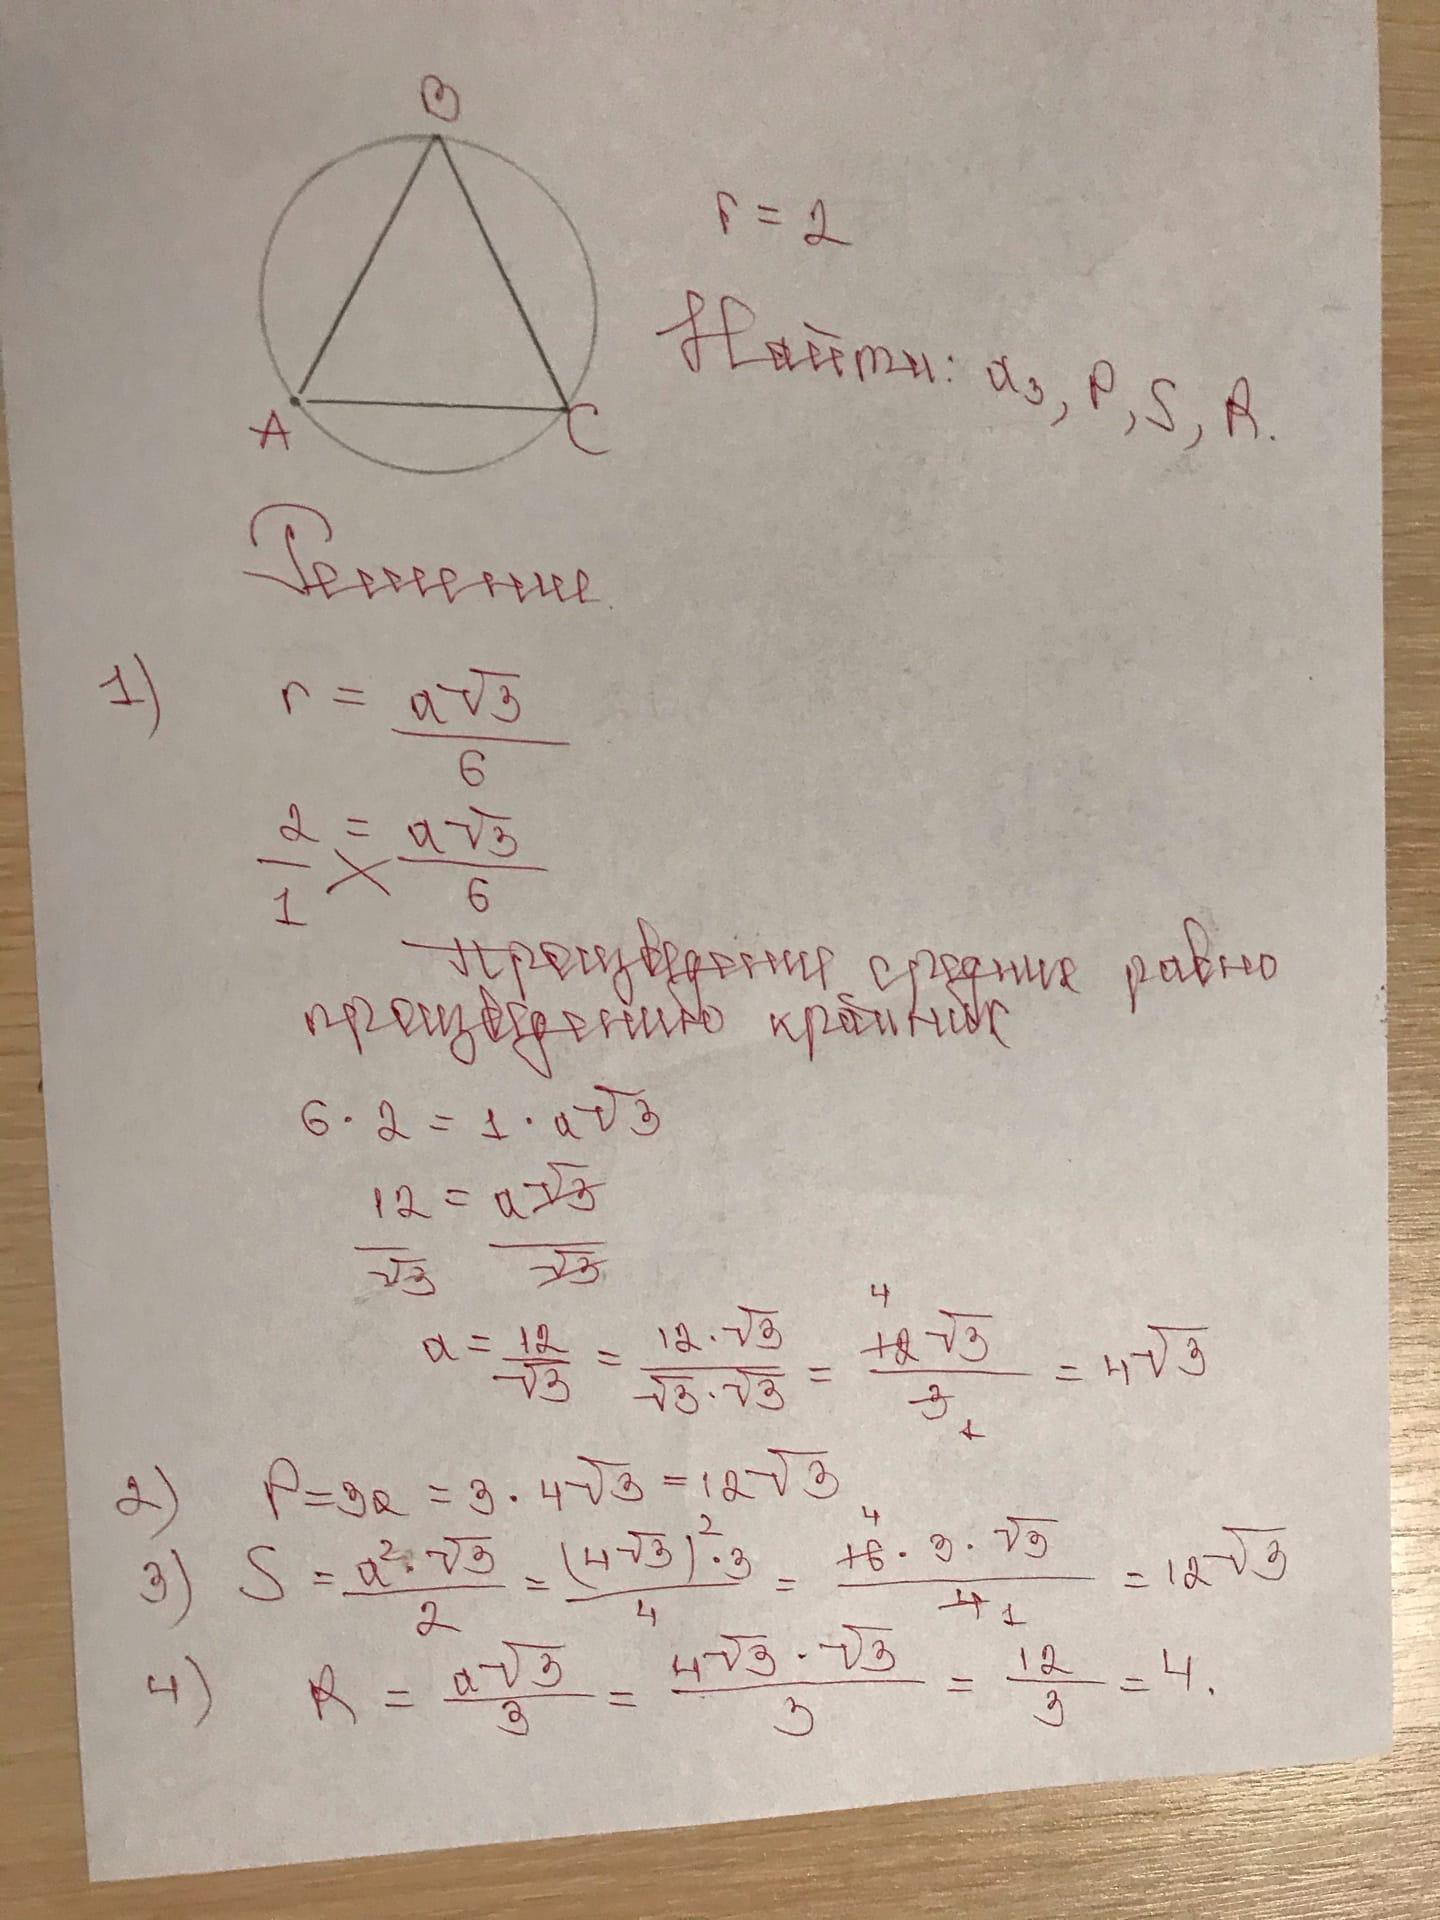 B
r = 2
Найти: a₃, P, S, R.
A C
Решение
1) r = a√3/6
2/1 = a√3/6
Произведение средние равно
произведению крайних
6 · 2 = 1 · a√3
12/√3 = a√3/√3
a = 12/√3 = 12·√3/√3·√3 = 12√3/3 = 4√3
4
1
2) P = 3a = 3 · 4√3 = 12√3
3) S = a²·√3/2 = (4√3)²·3/4 = 16·3·√3/4 = 12√3
4
1
4) R = a√3/3 = 4√3·√3/3 = 12/3 = 4.